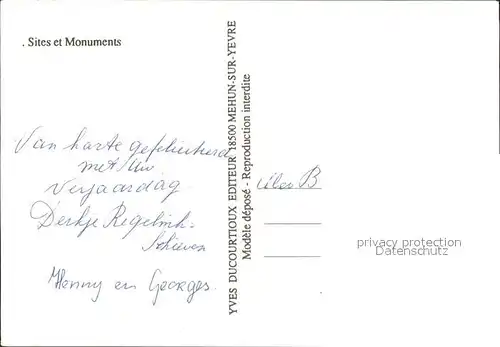 . Sites et Monuments
Van harte gefeliciteerd
met Uw
Verjaardag
Derkje Regelink-
Henny en Georges.
YVES DUCOURTIOUX EDITEUR 18500 MEHUN-SUR-YEVRE
Modèle déposé - Reproduction interdite
B
privacy protection
Datenschutz